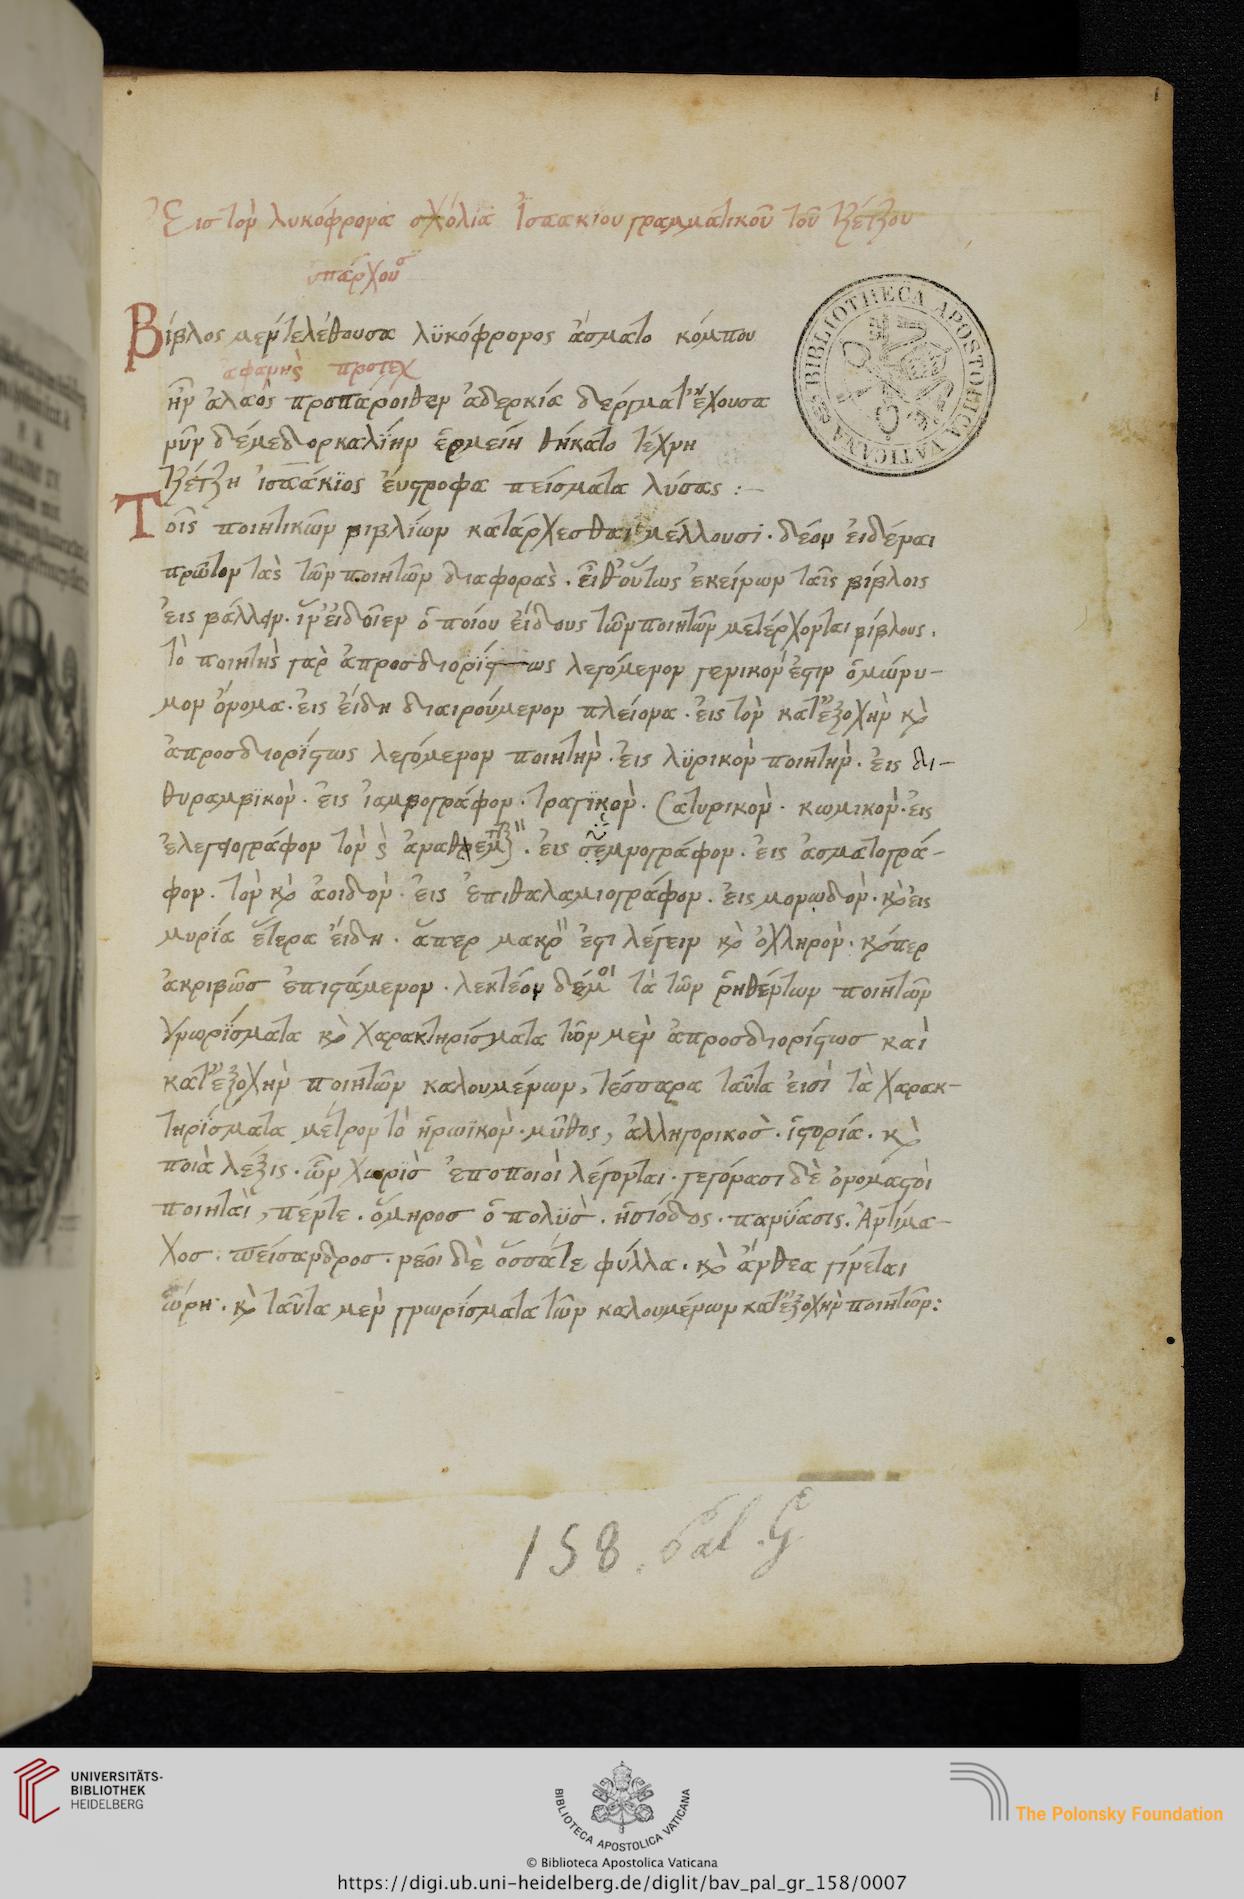 Εἰς τὸν λυκόφρονα σχόλια Ἰσαακίου γραμματικοῦ τοῦ τζέτζου
Βίβλος μὲν τελέθουσα λϋκόφρονος ἄσματο κόμπου
ἀφανὴς προτεχ
ἦν ἀλαὸς προπάροιθεν ἀδερκία δέργματ' ἔχουσα
νῦν δέ με δορκαλίην ἑρμείη θήκατο τέχνη
τζέτζη ἰσαάκϊος εὔστροφα πείσματα λύσας :—
Τοῖς ποιητικῶν βιβλίων κατάρχεσθαι μέλλουσι · δέον εἰδέναι
πρῶτον τὰς τῶν ποιητῶν διαφορὰς · εἶθ' οὕτως ἐκείνων ταῖς βίβλοις
εἰς βάλλειν · ἵν' εἰδοῖεν ὁποίου εἴδους τῶν ποιητῶν μετέρχονται βίβλους ·
τὸ ποιητὴς γὰρ ἀπροσδιορίστως λεγόμενον γενικόν ἐστιν ὁμώνυ-
μον ὄνομα · εἰς εἴδη διαιρούμενον πλείονα · εἰς τὸν κατ' ἐξοχὴν κὶ
ἀπροσδιορίστως λεγόμενον ποιητὴν · εἰς λϋρικὸν ποιητὴν · εἰς δι-
θυραμβϊκὸν · εἰς ἰαμβογράφον · τραγϊκὸν · σατυρικὸν · κωμικὸν · εἰς
ἐλεγειογράφον τὸν · εἰς σεμνογράφον · εἰς ἀσματογρά-
φον · τὸν κὶ ἀοιδὸν · εἰς ἐπιθαλαμιογράφον · εἰς μονῳδὸν · κὶ εἰς
μυρία ἕτερα εἴδη · ἅπερ μακρὸν ἐστι λέγειν κὶ ὀχληρὸν · κἄπερ
ἀκριβῶσ ἐπιστάμενον · λεκτέον δέ μοι τὰ τῶν ῥηθέντων ποιητῶν
γνωρϊσματα κὶ χαρακτηρίσματα τῶν μὲν ἀπροσδιορίστωσ καὶ
κατ' ἐξοχὴν ποιητῶν καλουμένων, τέσσαρα ταῦτα εἰσὶ τὰ χαρακ-
τηρίσματα μέτρον τὸ ἡρωϊκὸν · μῦθος, ἀλληγορικοσ · ἱστορία · κὶ
ποιὰ λέξις · ὧν χωρὶσ ἐποποιοὶ λέγονται · γεγόνασι δὲ ὀνομαστοὶ
ποιηταὶ, πέντε · ὅμηροσ ὁ πολὺσ · ἡσίοδος · πανύασις · Ἀντίμα-
χοσ · πείσανδροσ · νέοι δὲ ὅσσά τε φύλλα · κὶ ἄνθεα γίνεται
ὥρη · κὶ ταῦτα μὲν γνωρίσματα τῶν καλουμένων κατ' ἐξοχὴν ποιητῶν :
158. Pal. G
BIBLIOTHECA APOSTOLICA VATICANA
UNIVERSITÄTS-
BIBLIOTHEK
HEIDELBERG
BIBLIOTECA APOSTOLICA VATICANA
The Polonsky Foundation
© Biblioteca Apostolica Vaticana
https://digi.ub.uni-heidelberg.de/diglit/bav_pal_gr_158/0007